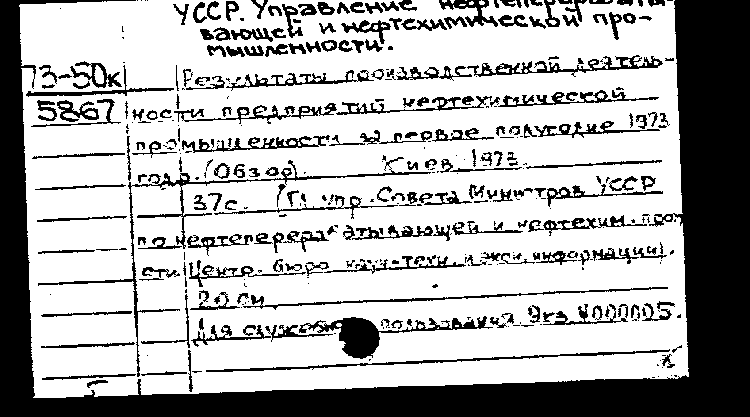 УССР. Управление нефтеперерабаты-
вающей и нефтехимической про-
мышленности.
73-50к Результаты производственной деятель-
5867 ности предприятий нефтехимической
промышленности за первое полугодие 1973
года. (Обзор). Киев 1973.
37с. (Гл. упр. Совета Министров УССР
по нефтеперерабатывающей и нефтехим. пром-
сти. Центр. бюро науч-техн. и экон. информации).
20 см.
Для служебного пользования. Экз. №000005.
5 к